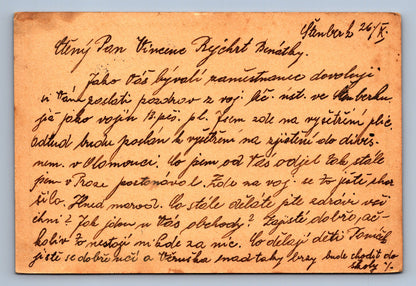 Šternberk 26/X.
Ctěný Pan Vincenc Rychrt Benátky.
Jako Váš bývalý zaměstnanec dovoluji
si Vám zaslati pozdrav z voj. léč. úst. ve Šternberku
já jako vojín pěš. pl. Jsem zde na vyšetření plic
odtud budu poslán k vyšetření na zjištění do divis.
nem. v Olomouci. Co jsem od Vás odjel tak stále
jsem v Praze postonával. Zde na voj. se to jistě zhor
šilo. Hned marod. Co stále děláte jste zdrávi vši
chni? Jak jdou u Vás obchody? Zajisté dobře, ač
koliv to nestojí nikde za nic. Co dělají děti
jistě se dobře učí a Věruška snad taky brzy bude choditi do
školy